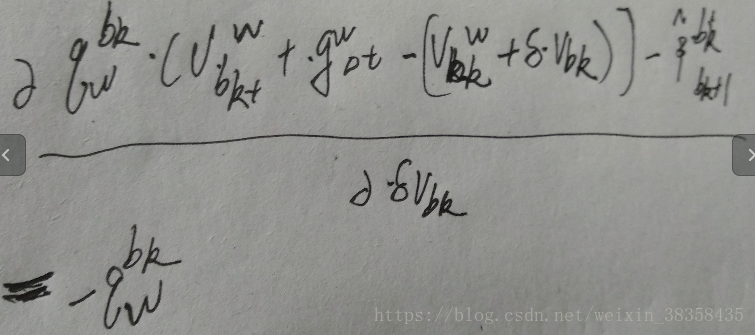 ∂ q_w^{bk} · (V_{bk+1}^w + g^w Δt - (V_{bk}^w + δ·V_{bk}))] - β̂_{bk+1}^{bk}
∂ δV_{bk}
= - q_w^{bk}
https://blog.csdn.net/weixin_38358435